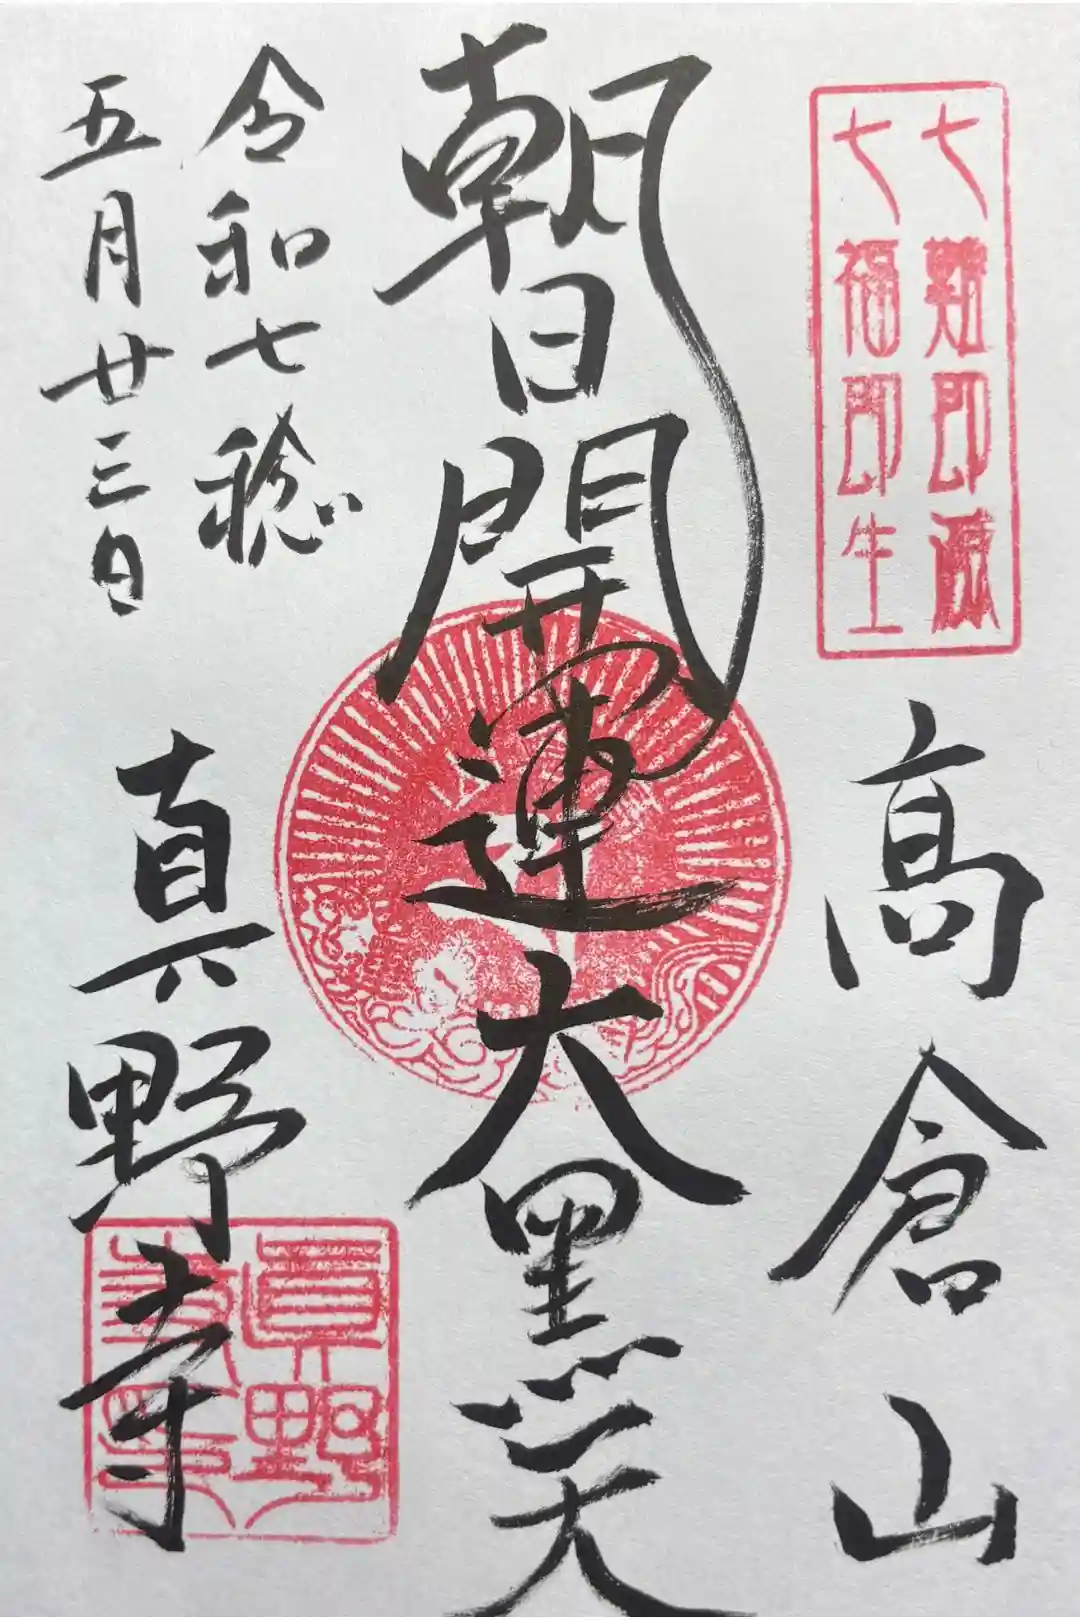 七難即滅
七福即生
高倉山
朝日開運大黑天
令和七稔
五月廿三日
真野寺
眞野
寺印